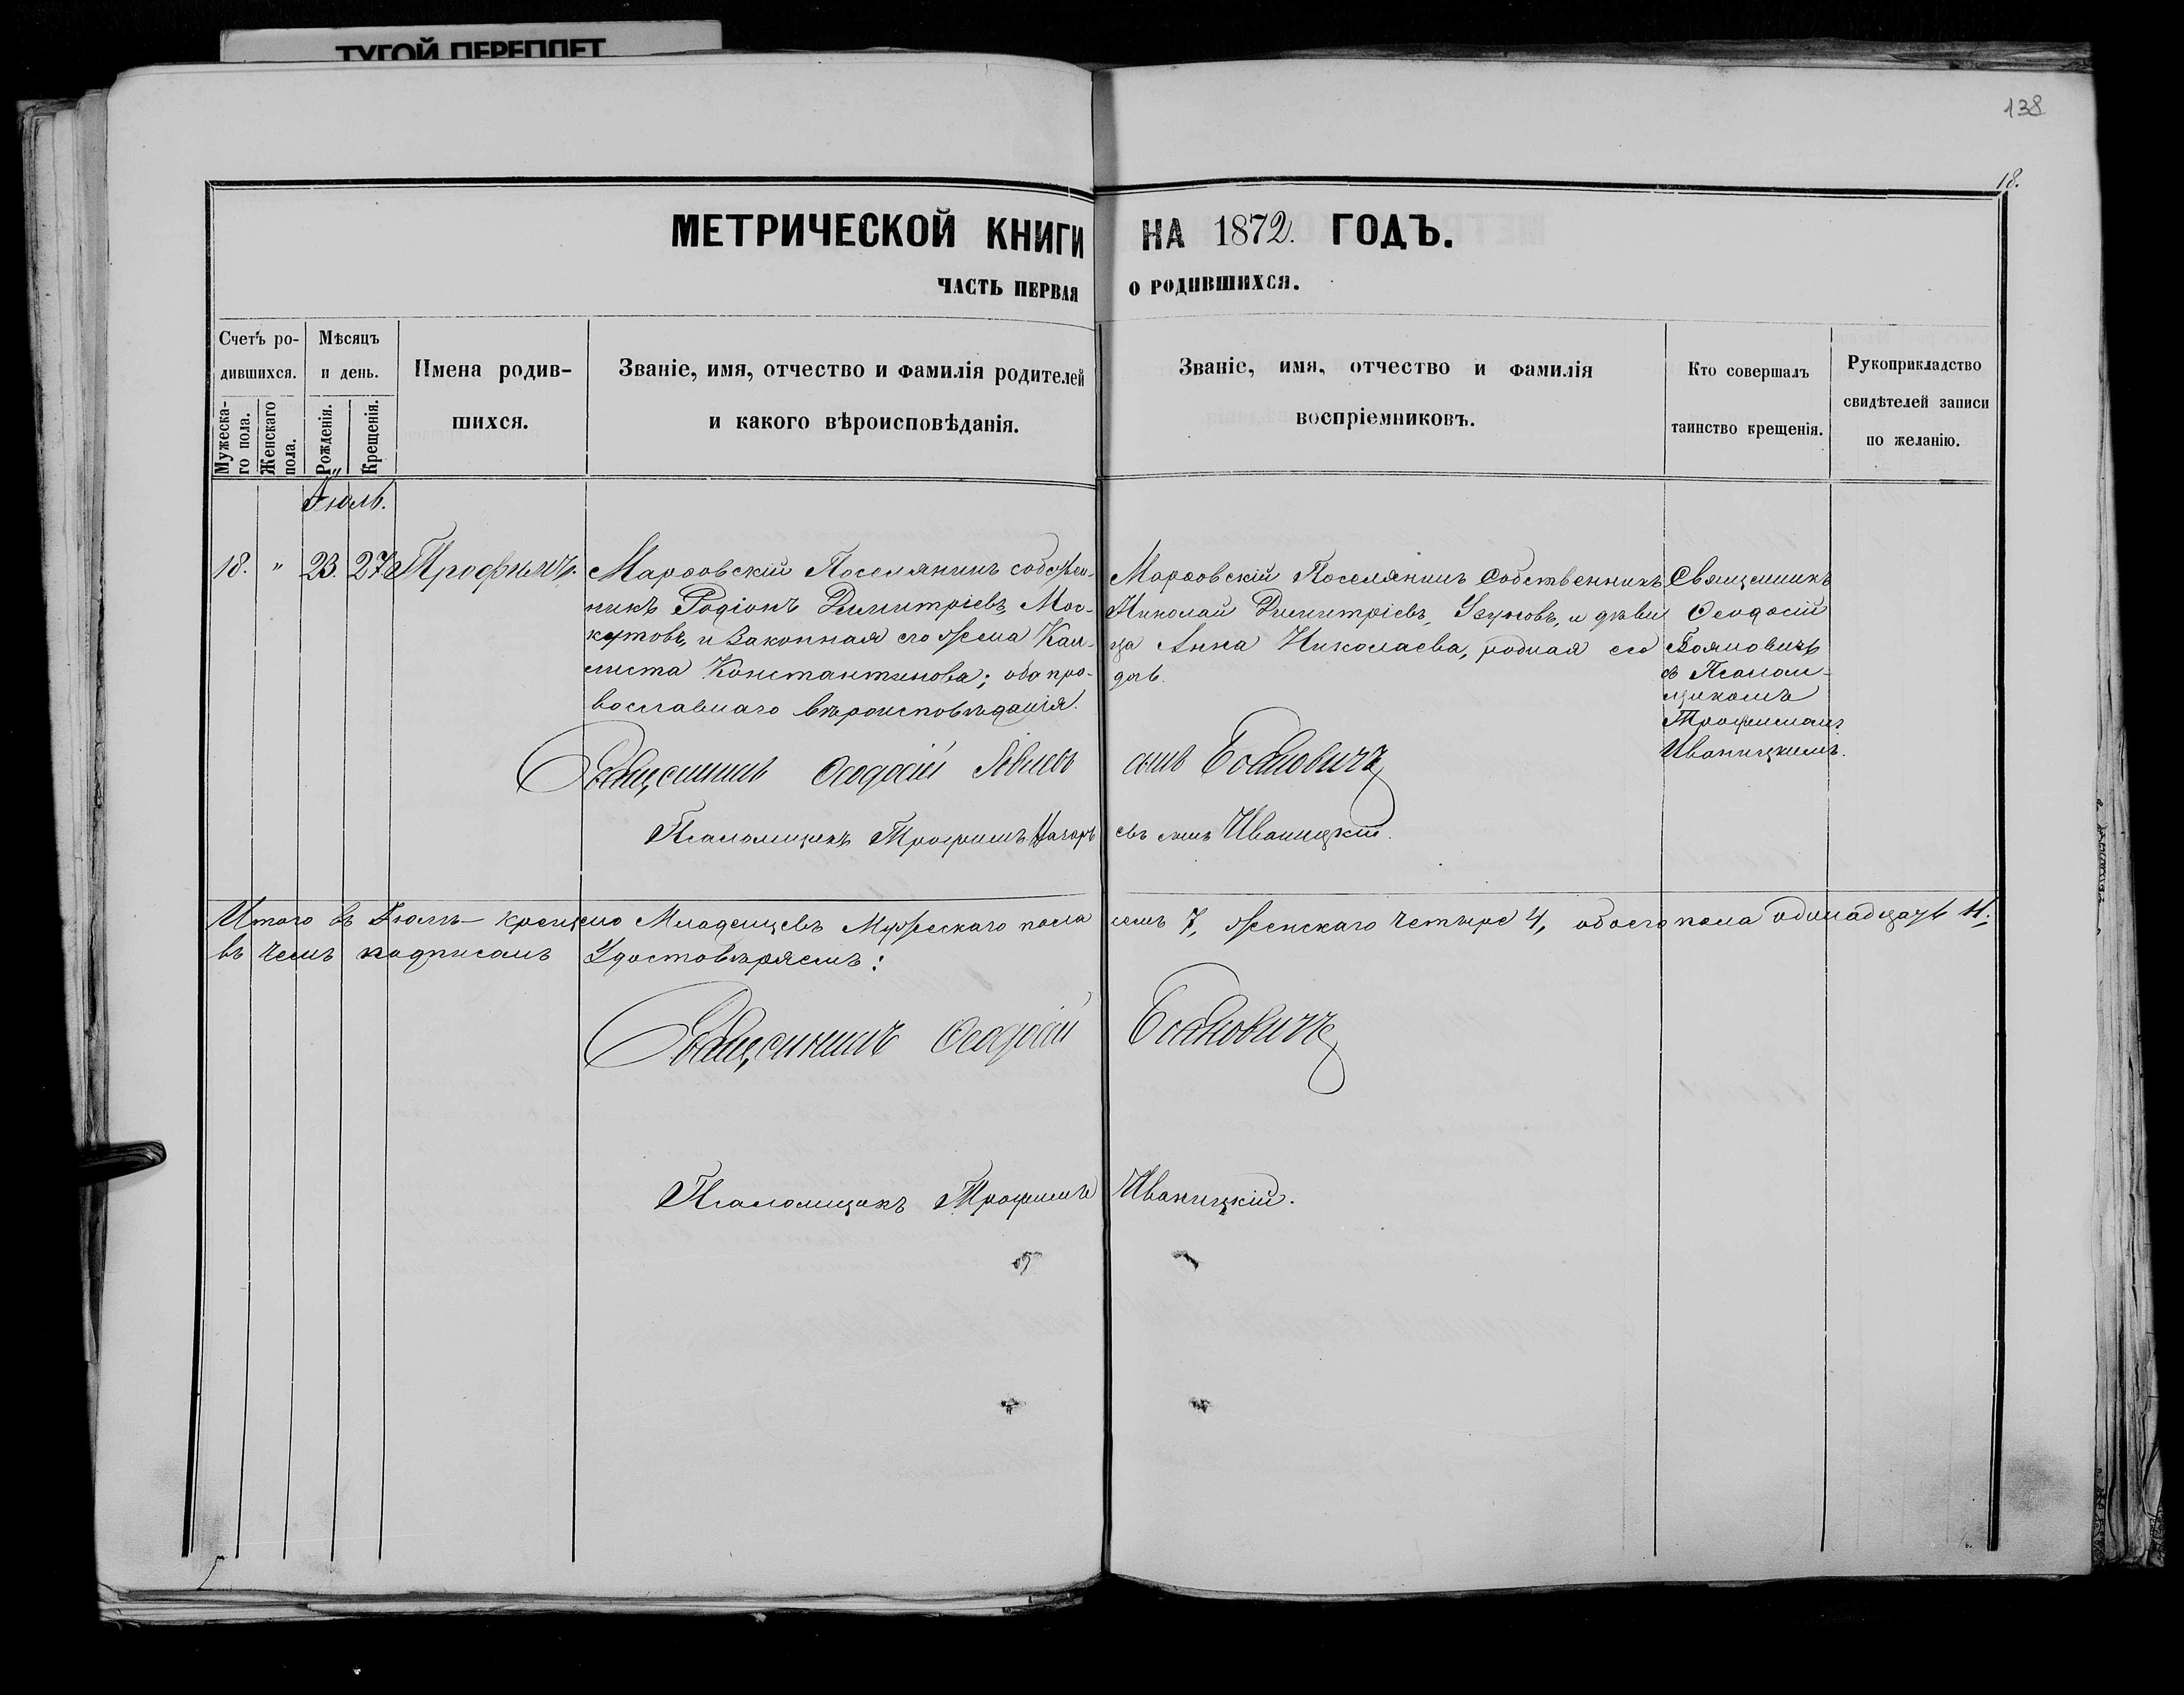 ТУГОЙ ПЕРЕПЛЕТ
138
18.
МЕТРИЧЕСКОЙ КНИГИ НА 1872. ГОДЪ.
ЧАСТЬ ПЕРВАЯ О РОДИВШИХСЯ.
Счетъ ро-
дившихся.
Мужеска-
го пола.
Женскаго
пола.
Мѣсяцъ
и день.
Рожденія.
Крещенія.
Имена родив-
шихся.
Званіе, имя, отчество и фамилія родителей
и какого вѣроисповѣданія.
Званіе, имя, отчество и фамилія
воспріемниковъ.
Кто совершалъ
таинство крещенія.
Рукоприкладство
свидѣтелей записи
по желанію.
Іюль.
18. " 23. 27. Трофимъ.
Поселянинъ
никъ Родіонъ Димитріевъ Мос-
кутовъ, и законная его жена Кал-
листа Константинова; оба пра-
вославнаго вѣроисповѣданія.
Поселянинъ Собственникъ
Николай Димитріевъ, Узуновъ, и дѣви
ца Анна Николаева, родная его
дочь.
Священникъ
Ѳеодосій
Бояновичъ
съ Псалом-
щикомъ
Трофимомъ
Иваницкимъ.
Священникъ Ѳеодосій сынъ Бояновичъ
Псаломщикъ Трофимъ Назаръ евъ сынъ Иваницкій.
Итого въ Іюлѣ крещено Младенцевъ Мужескаго пола семь 7, женскаго четыре 4, обоего пола одинадцать 11;
въ чемъ подписомъ Удостовѣряемъ:
Священникъ Ѳеодосій Бояновичъ
Псаломщикъ Трофимъ Иваницкій.